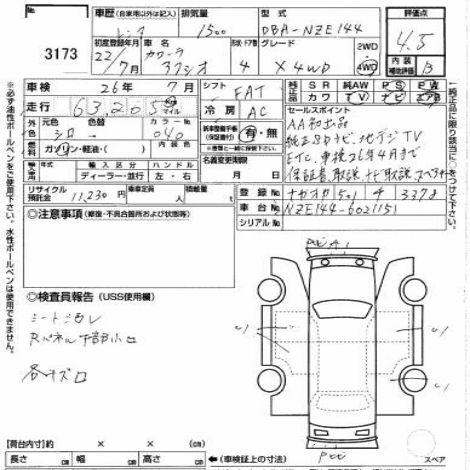 No.
3173
車歴(自家用以外は記入)
排気量
1500
型式
DBA-NZE144
評価点
4.5
初度登録年月
22/7月
車名
カローラ
アクシオ
ドア形状
4
グレード
X 4WD
2WD
4WD
内装
補助評価
B
車検
26年 7月
シフト
FAT
走行
63,205
マイル
冷房
AC
純正品
SR
カワ
純AW
TV
PS
ナビ
PW
エアB
外元色
シロ
色替
カラーNo.
040
内装色
新車整備手帳(保証書)
有・無
セールスポイント
AA初出品
純正SDナビ、地デジTV
ETC、車検26年4月まで
保証書、取説、ナビ取説、スペアキー
燃料
ガソリン・軽油・( )
輸入車
ディーラー・並行
ハンドル
左・右
名義変更期限
月 日
リサイクル預託金
11,230円
乗車定員
人
積載量
登録No.
ナガオカ501 チ 3378
車台No.
NZE144-6021151
シリアルNo.
○注意事項(修復・不具合箇所および状態等)
◎検査員報告(USS使用欄)
シートヨゴレ
Rパネル下部小凹
各キズ凹
※必ず油性ボールペンをご使用下さい。水性ボールペンは使用できません。
【荷台内寸】 × ×
長さ (cm)
幅 (cm)
高さ (cm)
(車検証上の寸法)
スペア